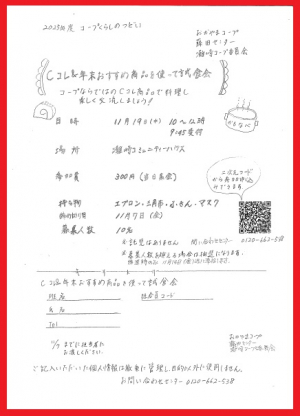 2025年度 コープくらしのつどい
おかやまコープ
藤田センター
灘崎コープ委員会
Cコレ&年末おすすめ商品を使って試食会
コープならではのCコレ商品で料理し
楽しく交流しましょう!
日時 11月19日(水) 10~12時
9:45受付
場所 灘崎コミュニティーハウス
参加費 300円(当日集金)
持ち物 エプロン・三角巾・ふきん・マスク
締め切り 11月7日(金)
募集人数 10名
二次元コード
から
※託児はありません 問い合わせセンター 0120-662-538
※募集人数を超えた場合は抽選になります。
Cコレ&年末おすすめ商品を使って試食会
氏名
組合員コード
Tel
11/7までに担当者に
お渡しください。
おかやまコープ
藤田センター
灘崎コープ委員会
ご記入いただいた個人情報は厳重に管理し、目的以外に使用しません。
お問い合わせセンター 0120-662-538